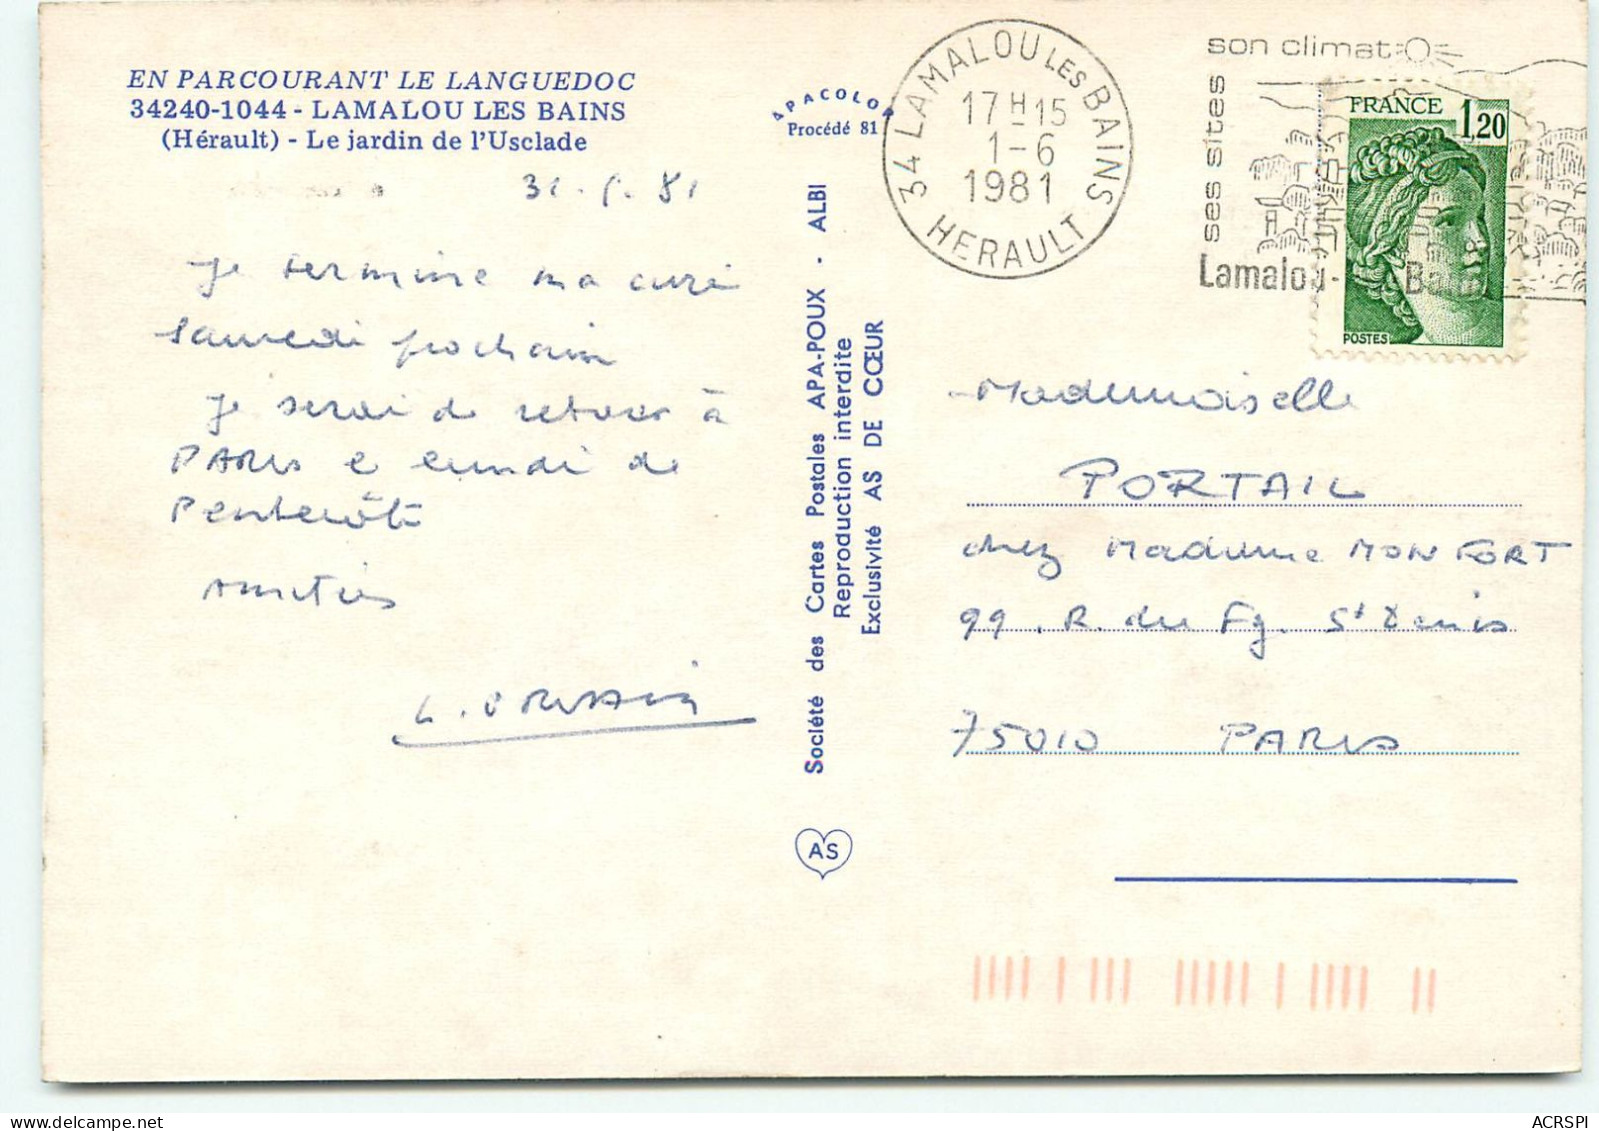 EN PARCOURANT LE LANGUEDOC
34240-1044 - LAMALOU LES BAINS
(Hérault) - Le jardin de l'Usclade
31.5.81
Je termine ma cure
samedi prochain
Je serai de retour à
PARIS le lundi de
Pentecôte
Amitiés
APACOLOR
Procédé 81
Société des Cartes Postales APA-POUX - ALBI
Reproduction interdite
Exclusivité AS DE CŒUR
AS
34 LAMALOU LES BAINS
17H15
1-6
1981
HERAULT
son climat
ses sites
Lamalou-
FRANCE
1,20
POSTES
Mademoiselle
PORTAIL
chez Madame MONFORT
99. R. du Fg. St Denis
75010 PARIS
ACRSPI